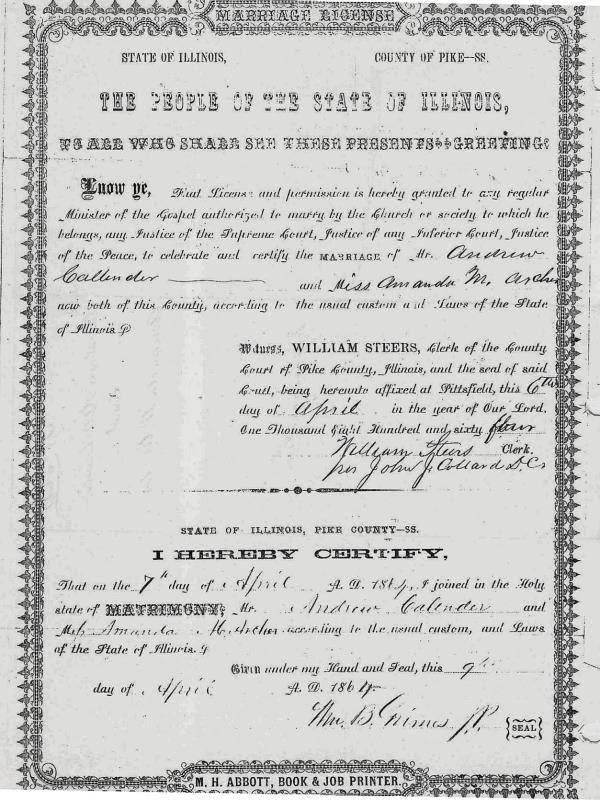 MARRIAGE LICENSE
STATE OF ILLINOIS, COUNTY OF PIKE—SS.
THE PEOPLE OF THE STATE OF ILLINOIS,
TO ALL WHO SHALL SEE THESE PRESENTS GREETING:
Know ye, That License and permission is hereby granted to any regular
Minister of the Gospel authorized to marry by the Church or society to which he
belongs, any Justice of the Supreme Court, Justice of any Inferior Court, Justice
of the Peace, to celebrate and certify the MARRIAGE of Mr. Andrew
Callender and Miss Amanda M. Archer
now both of this County, according to the usual custom and Laws of the State
of Illinois.
Witness, WILLIAM STEERS, Clerk of the County
Court of Pike County, Illinois, and the seal of said
Court, being hereunto affixed at Pittsfield, this 6th
day of April in the year of Our Lord,
One Thousand Eight Hundred and sixty four
William Steers Clerk.
per John J. Collard D.C.
STATE OF ILLINOIS, PIKE COUNTY—SS.
I HEREBY CERTIFY,
That on the 7th day of April A. D. 1864, I joined in the Holy
state of MATRIMONY, Mr. Andrew Calender and
Miss Amanda M. Archer according to the usual custom, and Laws
of the State of Illinois.
Given under my Hand and Seal, this 9th
day of April A. D. 1864.
Wm. B. Grimes J.P. SEAL
M. H. ABBOTT, BOOK & JOB PRINTER.